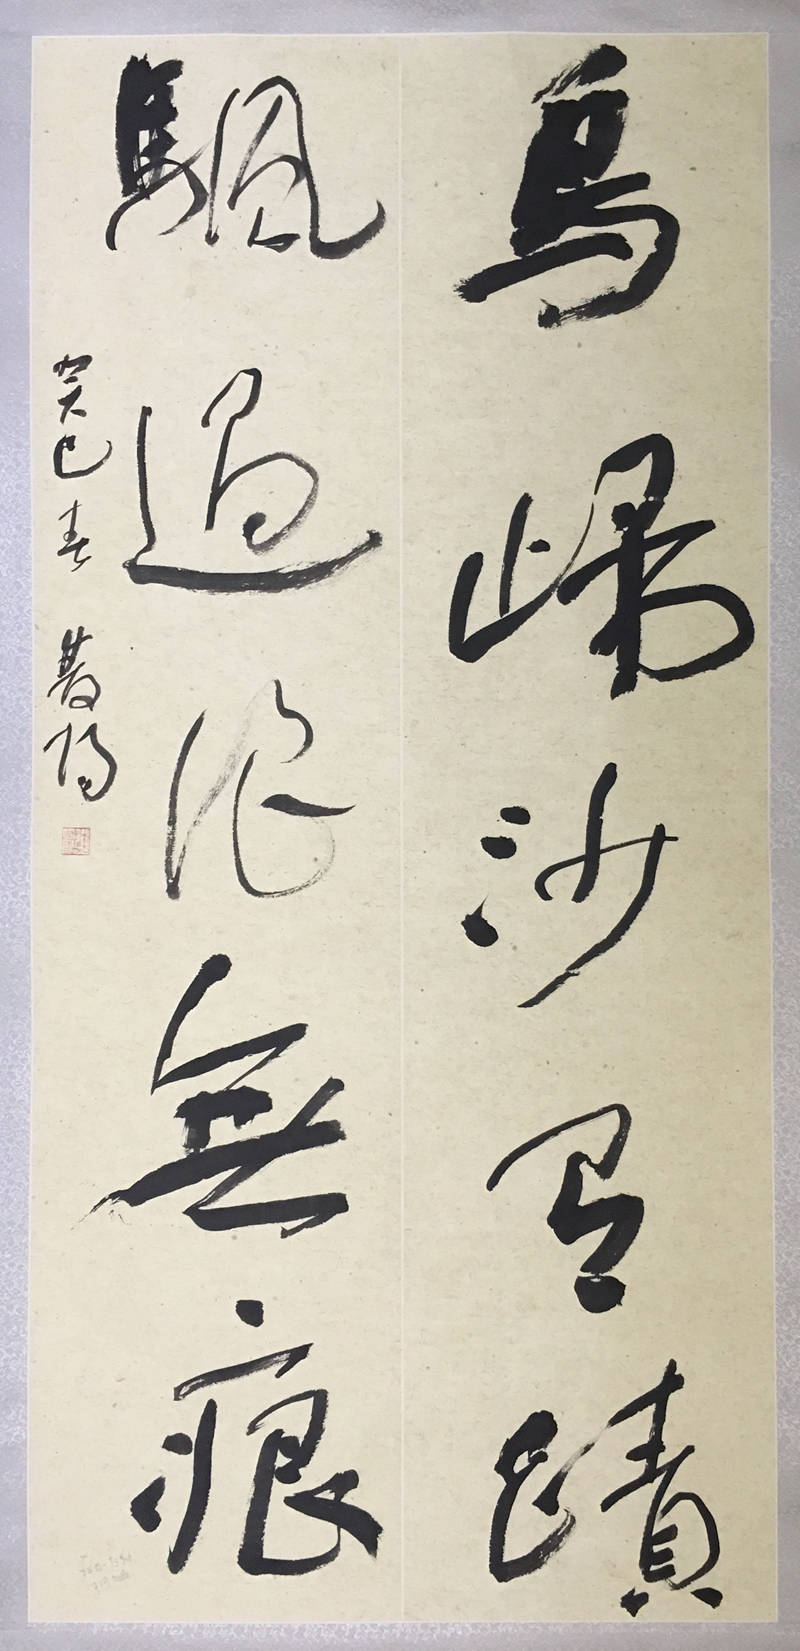 鳥歸沙有蹟
颿過浪無痕
癸巳春